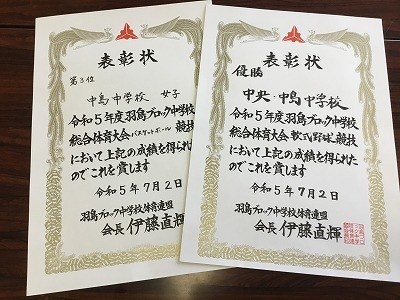 表彰状
第3位
中島中学校 女子
令和5年度羽島ブロック中学校
総合体育大会バスケットボール競技
において上記の成績を得られた
のでこれを賞します
令和5年7月2日
羽島ブロック中学校体育連盟
会長 伊藤直輝
表彰状
優勝
中央・中島中学校
令和5年度羽島ブロック中学校
総合体育大会軟式野球競技
において上記の成績を得られた
のでこれを賞します
令和5年7月2日
羽島ブロック中学校体育連盟
会長 伊藤直輝